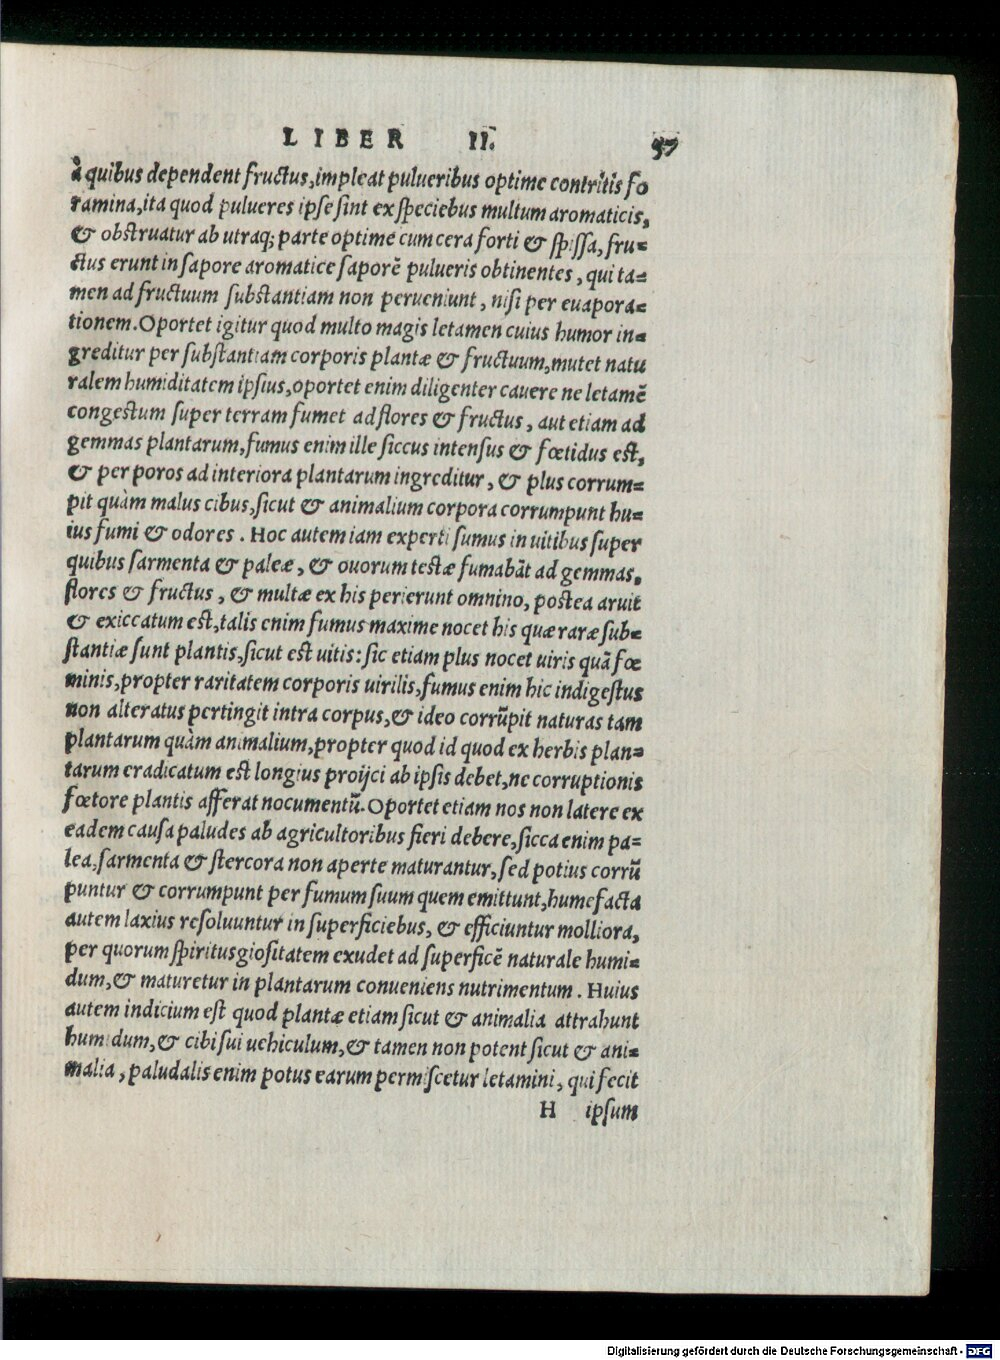 LIBER II. 57
à quibus dependent fructus, impleat pulueribus optime contritis fo
ramina, ita quod pulueres ipse sint ex speciebus multum aromaticis,
& obstruatur ab utraq; parte optime cum cera forti & spissa, fru=
ctus erunt in sapore aromatice saporē pulueris obtinentes, qui ta=
men ad fructuum substantiam non perueniunt, nisi per euapora=
tionem. Oportet igitur quod multo magis letamen cuius humor in=
greditur per substantiam corporis plantæ & fructuum, mutet natu
ralem humiditatem ipsius, oportet enim diligenter cauere ne letamē
congestum super terram fumet ad flores & fructus, aut etiam ad
gemmas plantarum, fumus enim ille siccus intensus & fœtidus est,
& per poros ad interiora plantarum ingreditur, & plus corrum=
pit quàm malus cibus, sicut & animalium corpora corrumpunt hu=
ius fumi & odores. Hoc autem iam experti sumus in uitibus super
quibus sarmenta & paleæ, & ouorum testæ fumabāt ad gemmas,
flores & fructus, & multæ ex his perierunt omnino, postea aruit
& exiccatum est, talis enim fumus maxime nocet his quæ raræ sub=
stantiæ sunt plantis, sicut est uitis: sic etiam plus nocet uiris quā fœ
minis, propter raritatem corporis uirilis, fumus enim hic indigestus
non alteratus pertingit intra corpus, & ideo corrūpit naturas tam
plantarum quàm animalium, propter quod id quod ex herbis plan=
tarum eradicatum est longius proijci ab ipsis debet, ne corruptionis
fœtore plantis afferat nocumentū. Oportet etiam nos non latere ex
eadem causa paludes ab agricultoribus fieri debere, sicca enim pa=
lea, sarmenta & stercora non aperte maturantur, sed potius corrū
puntur & corrumpunt per fumum suum quem emittunt, humefacta
autem laxius resoluuntur in superficiebus, & efficiuntur molliora,
per quorum spiritusgiositatem exudet ad superficē naturale humi=
dum, & maturetur in plantarum conueniens nutrimentum. Huius
autem indicium est quod plantæ etiam sicut & animalia attrahunt
humidum, & cibi sui uehiculum, & tamen non potent sicut & ani=
malia, paludalis enim potus earum permiscetur letamini, qui fecit
H ipsum
Digitalisierung gefördert durch die Deutsche Forschungsgemeinschaft - DFG